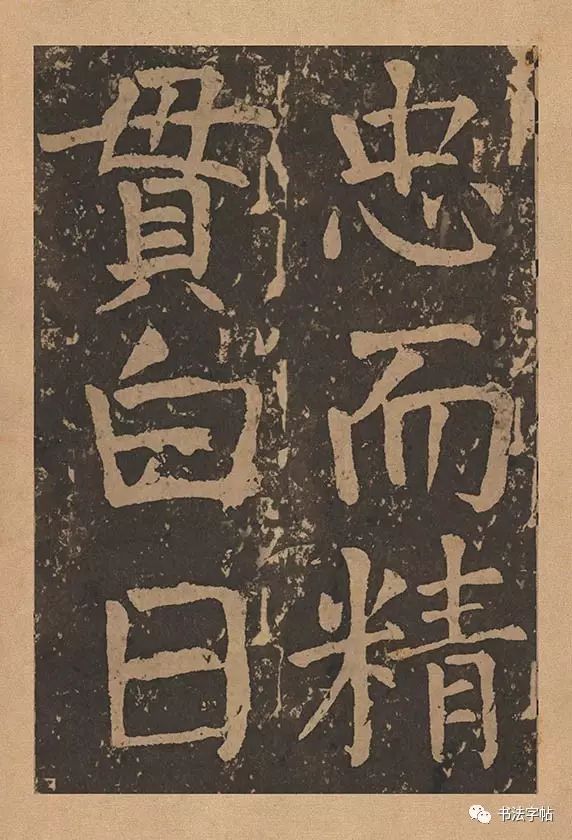 忠而精
貫白日
书法字帖